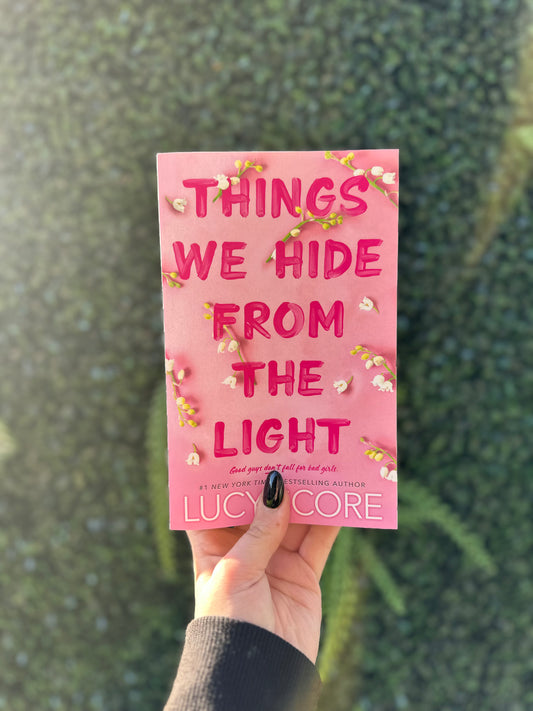 THINGS
WE HIDE
FROM
THE
LIGHT
Good guys don't fall for bad girls.
#1 NEW YORK TIMES BESTSELLING AUTHOR
LUCY CORE